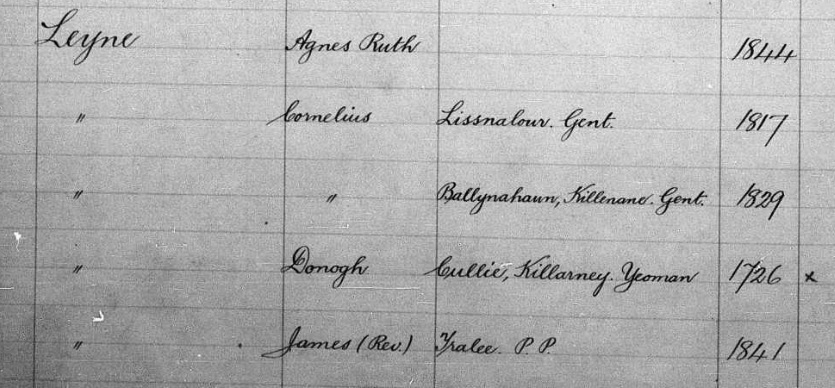 Leyne Agnes Ruth 1844
" Cornelius Lissnalour. Gent. 1817
" " Ballynahaun, Killenane. Gent. 1829
" Donogh Cullie, Killarney. Yeoman 1726 x
" James (Rev.) Tralee. P.P. 1841